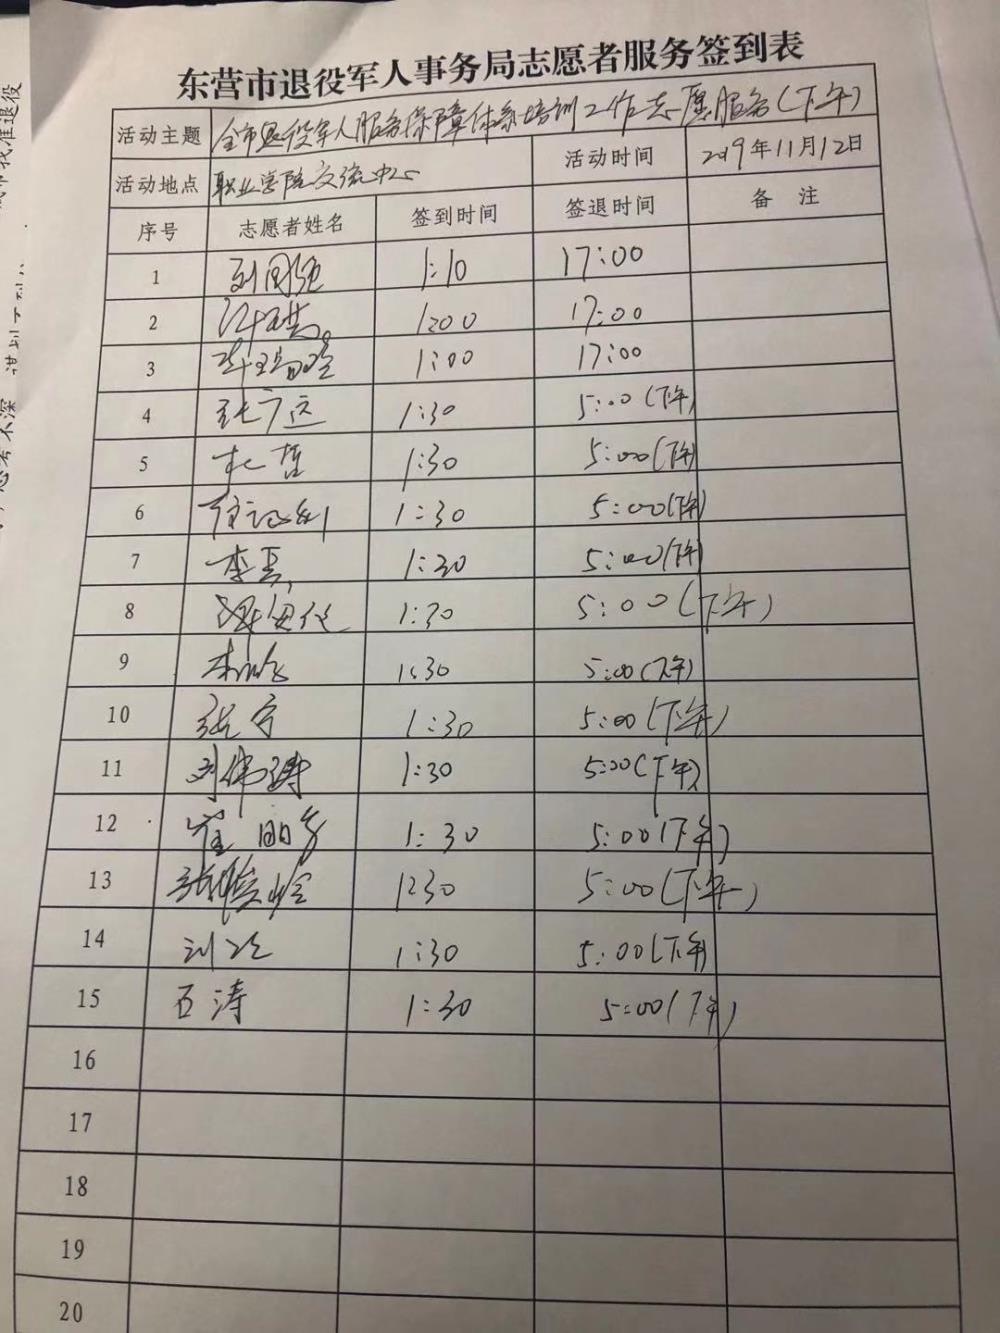 东营市退役军人事务局志愿者服务签到表
活动主题 全市退役军人服务保障体系培训工作志愿服务(下午)
活动地点 职业学院交流中心 活动时间 2019年11月12日
序号 志愿者姓名 签到时间 签退时间 备注
1 刘国强 1:10 17:00
2 1:00 17:00
3 1:00 17:00
4 张广远 1:30 5:00(下午)
5 杜哲 1:30 5:00(下午)
6 1:30 5:00(下午)
7 李真 1:30 5:00(下午)
8 1:30 5:00(下午)
9 1:30 5:00(下午)
10 张宁 1:30 5:00(下午)
11 刘伟涛 1:30 5:00(下午)
12 崔丽芳 1:30 5:00(下午)
13 1:30 5:00(下午)
14 1:30 5:00(下午)
15 石涛 1:30 5:00(下午)
16
17
18
19
20